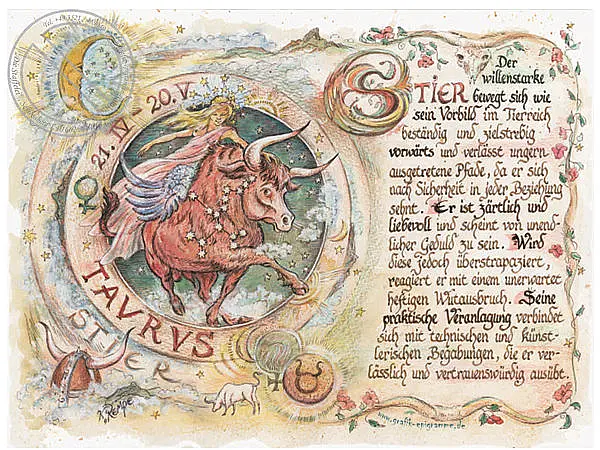 21.IV - 20.V.
TAVRVS
STIER
K. Rempe
Der
willensstarke
STIER bewegt sich wie
sein Vorbild im Tierreich
beständig und zielstrebig
vorwärts und verlässt ungern
ausgetretene Pfade, da er sich
nach Sicherheit in jeder Beziehung
sehnt. Er ist zärtlich und
liebevoll und scheint von unend-
licher Geduld zu sein. Wird
diese jedoch überstrapaziert,
reagiert er mit einem unerwartet
heftigen Wutausbruch. Seine
praktische Veranlagung verbindet
sich mit technischen und künst-
lerischen Begabungen, die er ver-
lässlich und vertrauenswürdig ausübt.
www.grafik-epigramme.de